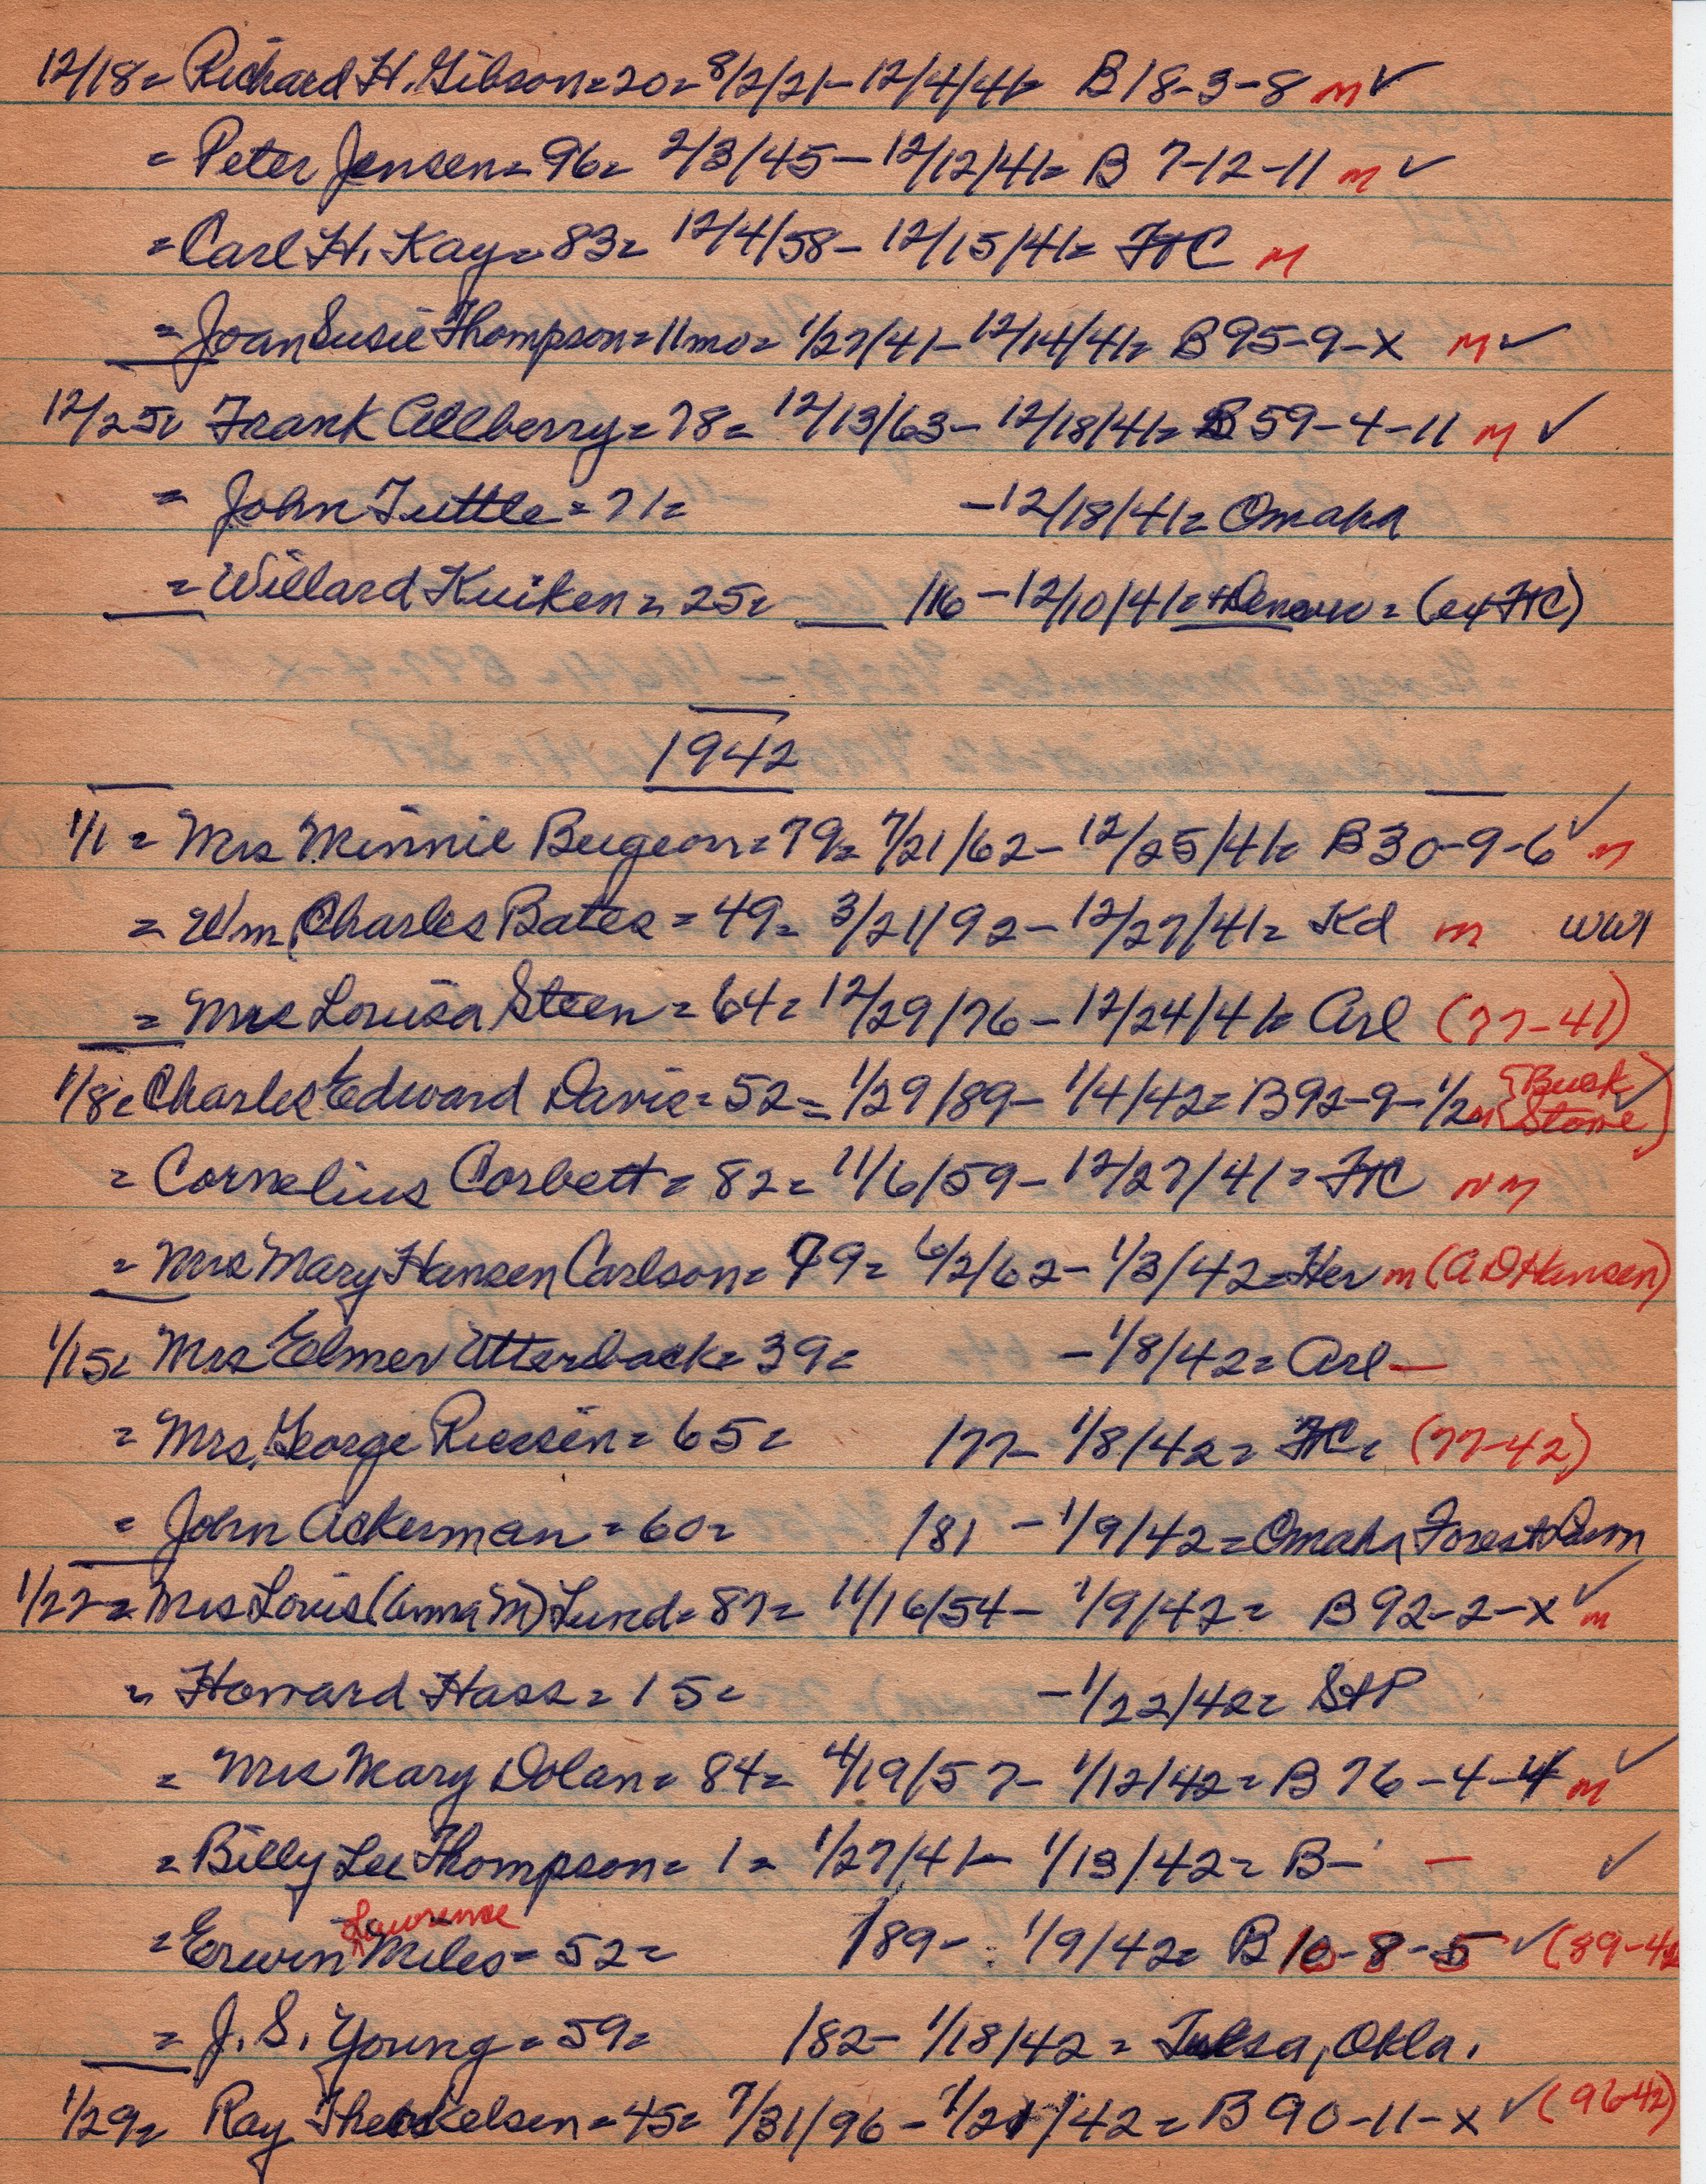 12/18= Richard H. Gibson=20=8/2/21-12/4/41= B18-3-8 m✓
= Peter Jensen=96= 2/3/45-12/12/41= B 7-12-11 m ✓
=Carl H. Kay=83= 12/4/58-12/15/41= FtC m
=Joan Susie Thompson=11mo= 1/27/41-12/14/41= B95-9-X m ✓
12/25= Frank Allberry=78= 12/13/63-12/18/41= B59-4-11 m ✓
= John Tuttle=71= -12/18/41= Omaha
=Willard Kuiken=25= /16-12/10/41= (ex FtC)
1942
1/1= Mrs Minnie =79= 7/21/62-12/25/41= B30-9-6 ✓ m
= Wm. Charles Bates=49= 3/21/92-12/27/41= Kd m WW1
= Mrs Louisa Steen=64= 12/29/76-12/24/41= Arl (77-41)
1/8= Charles Edward Davis=52= 1/29/89-1/4/42= B92-9-1/2 m {Buck Stone} ✓
= Cornelius Corbett=82= 11/6/59-12/27/41= FtC NM
= Mrs Mary Hansen Carlson=79= 6/2/62-1/3/42=Her m (A D Hansen)
1/15= Mrs Elmer Utterback=39= -1/8/42= Arl —
= Mrs. George =65= /77-1/8/42= FtC= (77-42)
= John Ackerman=60= /81 -1/9/42=Omaha Forest Lawn
1/22= Mrs Louis (Anna M) Lund=87= 11/16/54-1/9/42= B92-2-X ✓ m
= Howard Hass=15= -1/22/42= StP
= Mrs Mary Dolan=84= 4/19/57-1/12/42= B76-4-4 m ✓
= Billy Lee Thompson=1= 1/27/41-1/13/42= B- — ✓
=Erwin Lawrence Miles=52= /89-1/9/42= B10-8-5 ✓ (89-42
= J. S. Young=59= /82-1/18/42= Tulsa, Okla.
1/29= Ray Therkelsen=45= 7/31/96-1/21/42= B90-11-X ✓ (96-42)